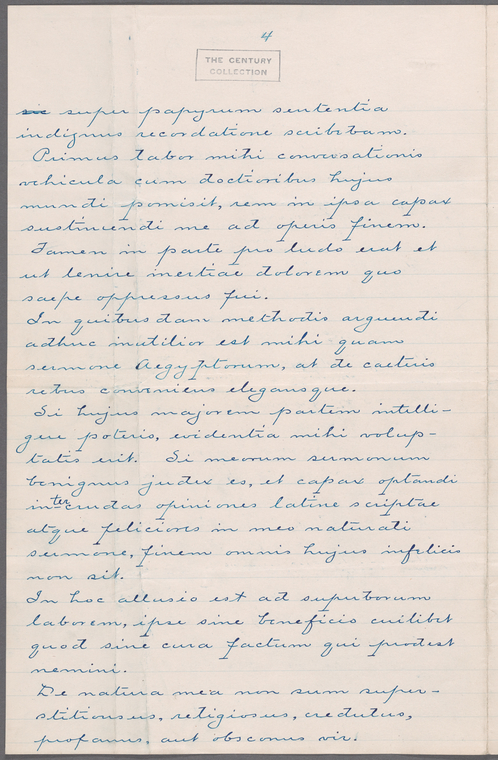 4
THE CENTURY
COLLECTION
sic super papyrum sententia
indignus recordatione scribebam.
Primus labor mihi conversationis
vehicula cum doctioribus hujus
mundi promisit, rem in ipsa capax
sustinendi me ad operis finem.
Tamen in parte pro ludo erat et
ut lenire inertiae dolorem quo
saepe oppressus fui.
In quibusdam methodis arguendi
adhuc inutilior est mihi quam
sermone Aegyptorum, at de caeteris
rebus conveniens elegansque.
Si hujus majorem partem intelli-
gere poteris, evidentia mihi volup-
tatis erit. Si meorum sermonum
benignus judex es, et capax optandi
inter crudas opiniones latine scriptae
atque feliciores in meo naturali
sermone, finem omnis hujus infelicis
non sit.
In hoc allusio est ad superborum
laborem, ipse sine beneficio cuilibet
quod sine cura factum qui prodest
nemini.
De natura mea non sum super-
stitionsus, religiosus, credulus,
profanus, aut obscenus vir.